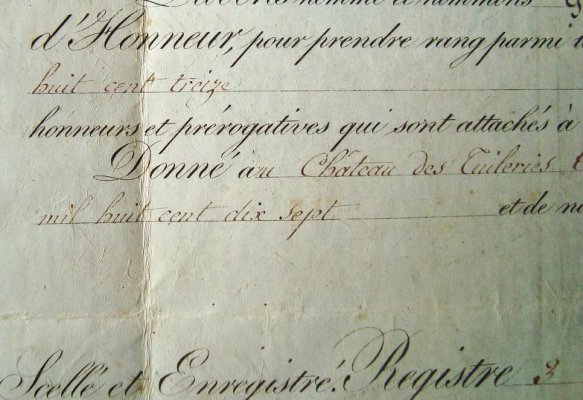 nommé et nommons
d'Honneur, pour prendre rang parmi
huit cent treize
honneurs et prérogatives qui sont attachés à
Donné au Château des Tuileries
mil huit cent dix sept et de
Scellé et Enregistré. Registre 3